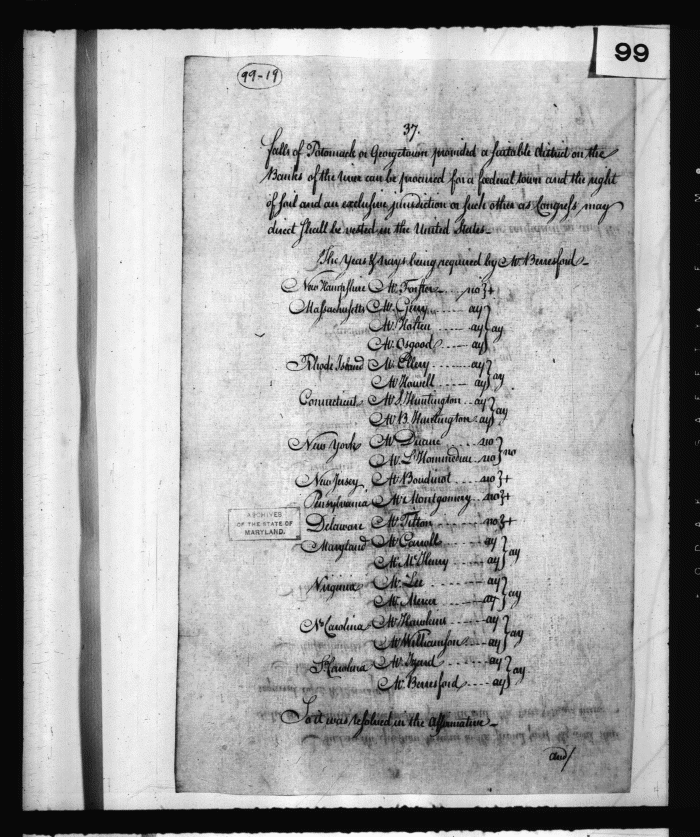 99
99-19
37.
falls of Potomack or Georgetown provided a suitable district on the
Banks of the river can be procured for a federal town and the right
of soil and an exclusive jurisdiction or such other as Congress may
direct shall be vested in the United States_
The Yeas & nays being required by Mr. Berresford_
New Hampshire Mr. Foster no }+
Massachusetts Mr. Gerry ay
Mr. Holten ay } ay
Mr. Osgood ay
Rhode Island Mr. Ellery ay
Mr Howell ay } ay
Connecticut Mr S. Huntington ay
Mr B. Huntington ay } ay
New York Mr Duane no
Mr. L'Hommedieu no } no
New Jersey Mr Boudinot no }+
Pensylvania Mr Montgomery no }+
Delaware Mr Tilton no }+
Maryland Mr Carroll ay
Mr. McHenry ay } ay
Virginia Mr. Lee ay
Mr. Mercer ay } ay
No Carolina Mr Hawkins ay
Mr Williamson ay } ay
So Carolina Mr. Izard ay
Mr. Berresford ay } ay
So it was resolved in the affirmative_
and/
ARCHIVES
OF THE STATE OF
MARYLAND.